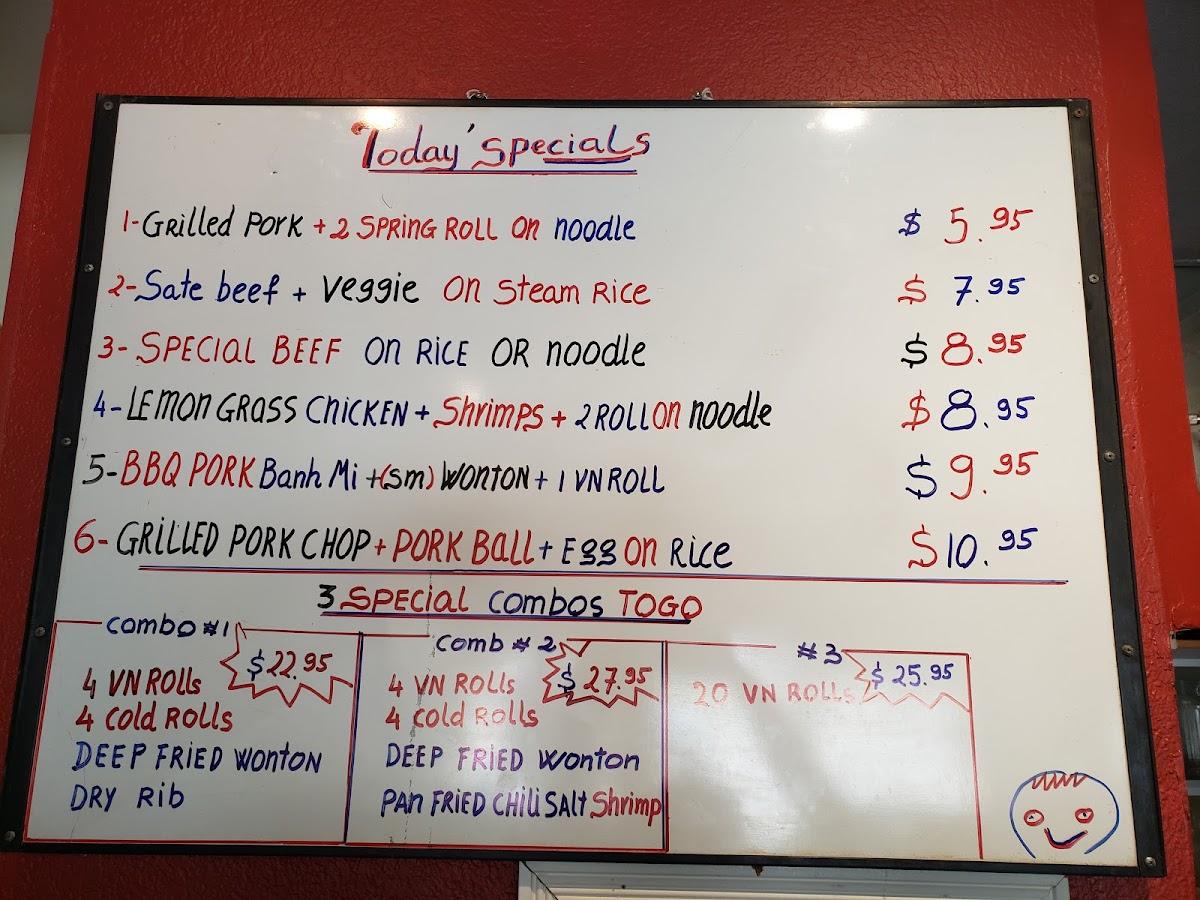 Today' specials
1-Grilled Pork + 2 SPRING ROLL on noodle $ 5.95
2-Sate beef + Veggie on Steam Rice $ 7.95
3- SPECIAL BEEF on RICE OR noodle $ 8.95
4-LEMON GRASS CHICKEN + Shrimps + 2 ROLL on noodle $ 8.95
5-BBQ PORK Banh Mi +(sm) WONTON + 1 VN ROLL $ 9.95
6- GRILLED PORK CHOP + PORK Ball + Egg on Rice $10.95
3 SPECIAL COMBOS TOGO
Combo #1
$22.95
4 VN ROLLs
4 Cold ROLLs
DEEP FRIED WONTON
DRY Rib
Comb # 2
$ 27.95
4 VN ROLLs
4 Cold ROLLs
DEEP FRIED Wonton
PAN FRIED CHILI SALT Shrimp
#3
$ 25.95
20 VN ROLLs